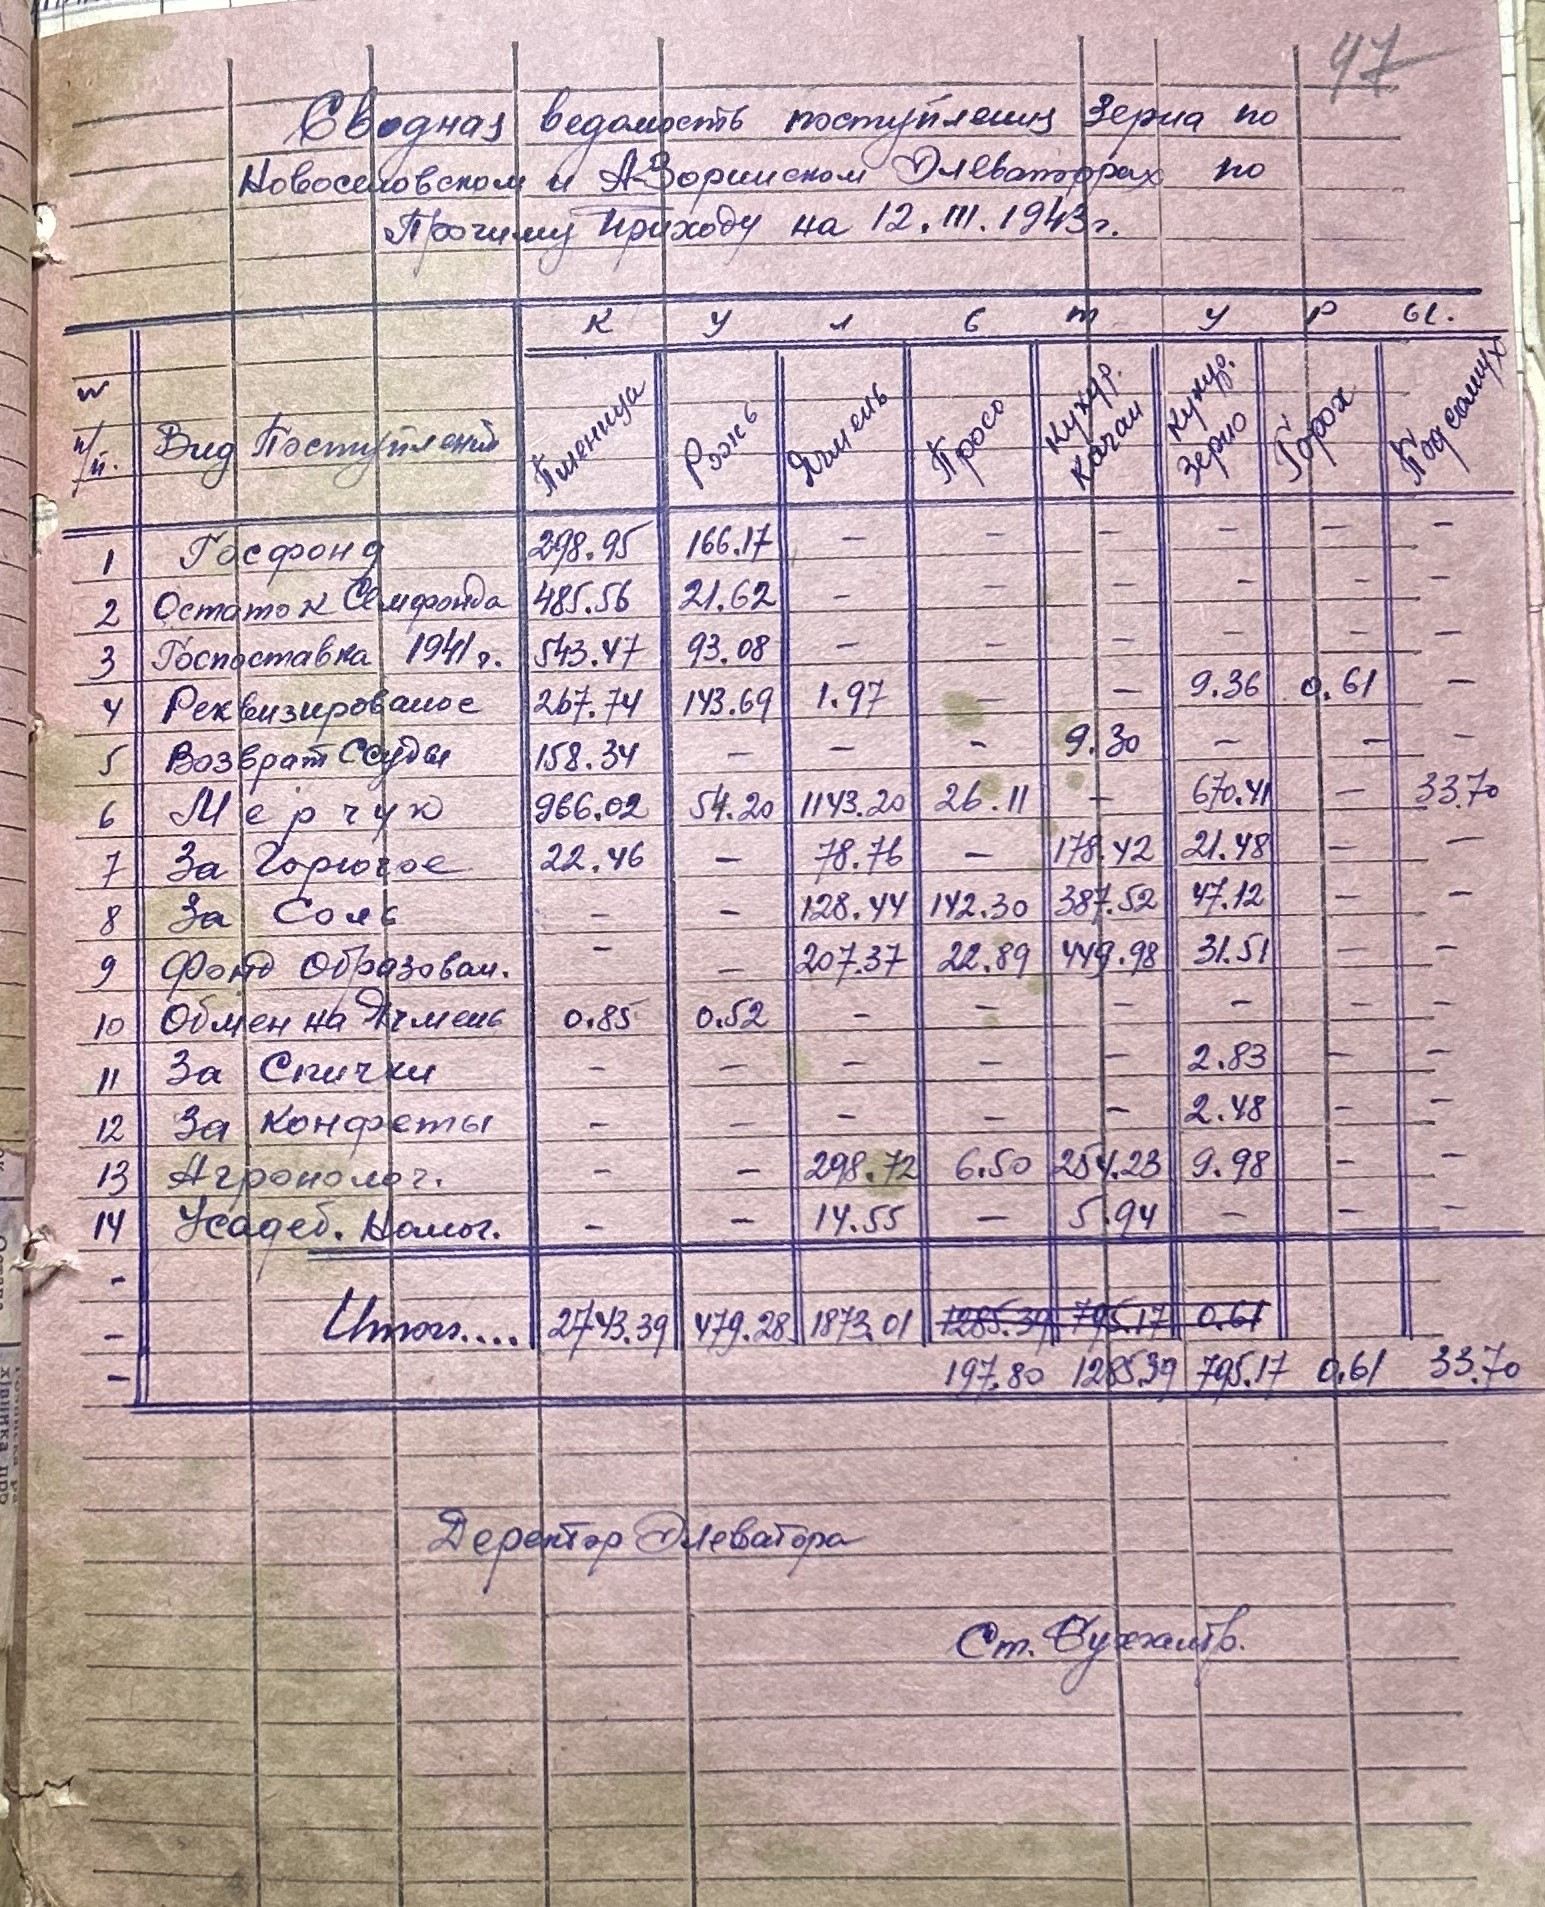 47
Сводная ведомость поступления Зерна по
Новоселовском и А-Зоринском Элеваторах по
Прочиму приходу на 12.III.1943г.
К У л ь т у р ы.
№ п/п. Вид Поступлений Пшеница Рожь Ячмень Просо Кукур. Качан Кукур. Зерно Горох Подсолнух
1 Госфонд 298.95 166.17 – – – – – –
2 Остаток Семфонда 485.56 21.62 – – – – – –
3 Госпоставка 1941г. 543.47 93.08 – – – – – –
4 Реквизированое 267.74 143.69 1.97 – – 9.36 0.61 –
5 Возврат Ссуды 158.34 – – – 9.30 – – –
6 Мерчук 966.02 54.20 1143.20 26.11 – 670.41 – 33.70
7 За Горючое 22.46 – 78.76 – 178.42 21.48 – –
8 За Соль – – 128.44 142.30 387.52 47.12 – –
9 Фонд Образован. – – 207.37 22.89 449.98 31.51 – –
10 Обмен на Ячмень 0.85 0.52 – – – – – –
11 За Спички – – – – – 2.83 – –
12 За Конфеты – – – – – 2.48 – –
13 Агрополог. – – 298.72 6.50 254.23 9.98 – –
14 Усадеб. Налог. – – 14.55 – 5.94 – – –
-
- Итого.... 2743.39 479.28 1873.01 1285.39 795.17 0.61
- 197.80 1285.39 795.17 0.61 33.70
Деректор Элеватора
Ст. Бухгалтр.